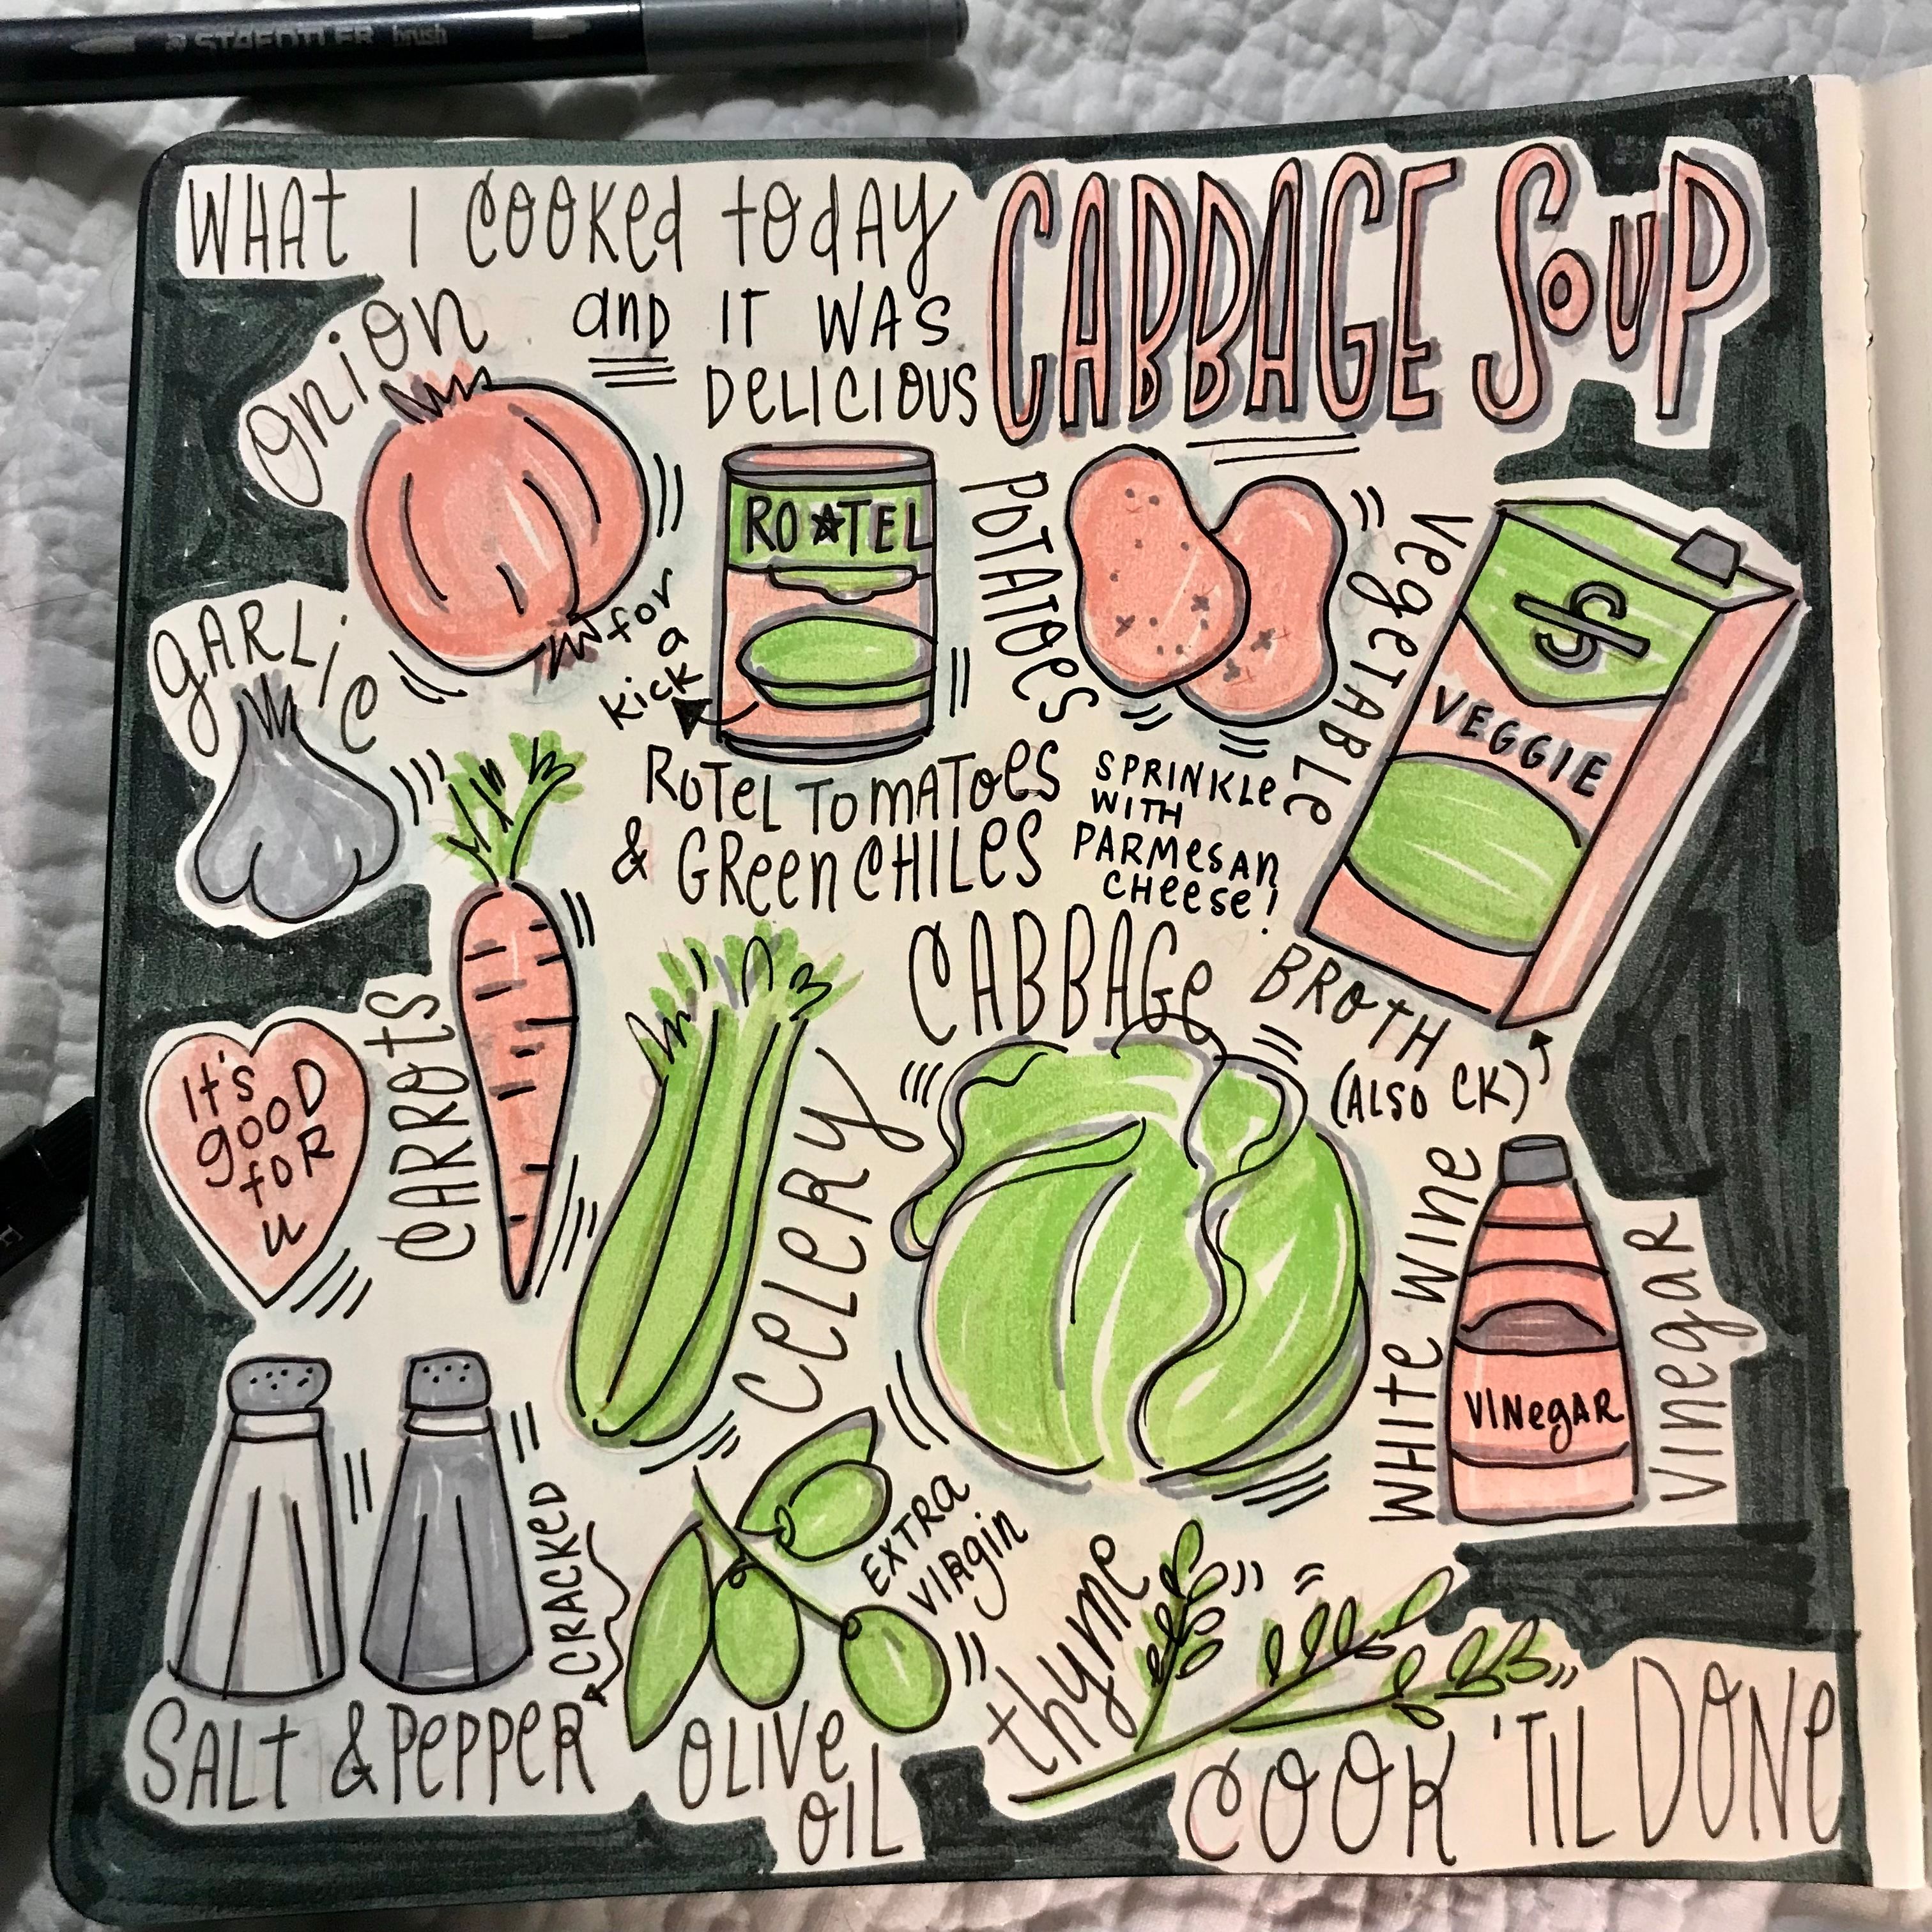 STAEDTLER brush
WHAt I COOKed todAy
and IT WAS
DeLICIOUS
CABBAGE SOUP
Onion
RO★TEL
for
a
kick
ROTeL TOMATOeS
& GReen CHILES
POTATOES
SPRINKLe
WITH
PARMesAn
CHeese!
VegeTABLe
BROTH
(ALSO CK)
VEGGIE
gARLiC
CARROtS
It's
gooD
foR
u
CeLeRy
CABBAGe
WHite WINe
VinegaR
VINegAR
SALt & PePPeR
CRACKED
EXTRA
VIRgin
OLIVe
OIL
thyme
COOK 'TIL DONe